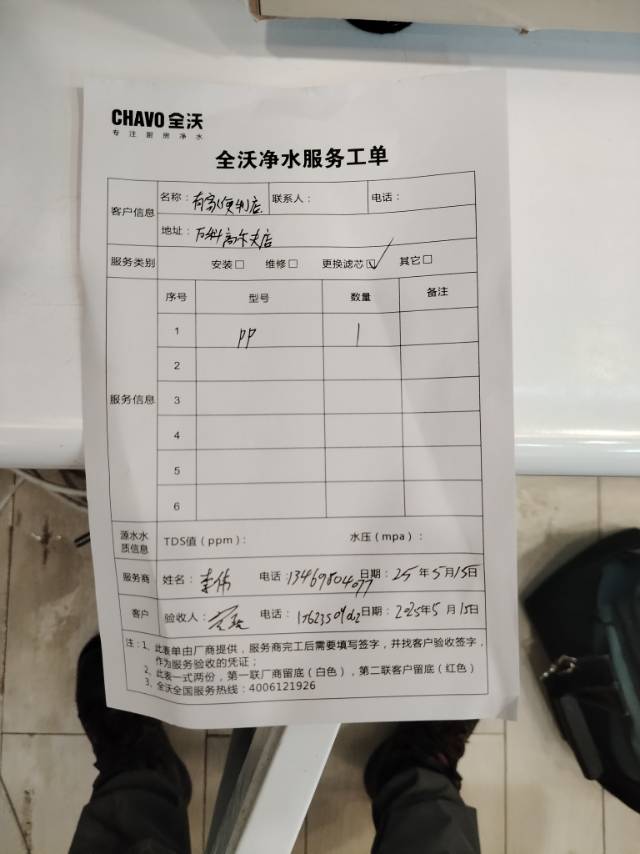 CHAVO 全沃
专注厨房净水
全沃净水服务工单
客户信息
名称：有家便利店 联系人： 电话：
地址：万科高尔夫店
服务类别 安装□ 维修□ 更换滤芯☑ 其它□
服务信息
序号 型号 数量 备注
1 PP 1
2
3
4
5
6
源水水质信息 TDS值（ppm）： 水压（mpa）：
服务商 姓名：李伟 电话：13469804077 日期：25年5月15日
客户 验收人： 电话： 日期：2025年5月15日
注：1、此表单由厂商提供，服务商完工后需要填写签字，并找客户验收签字，
作为服务验收的凭证；
2、此表一式两份，第一联厂商留底（白色），第二联客户留底（红色）
3、全沃全国服务热线：4006121926